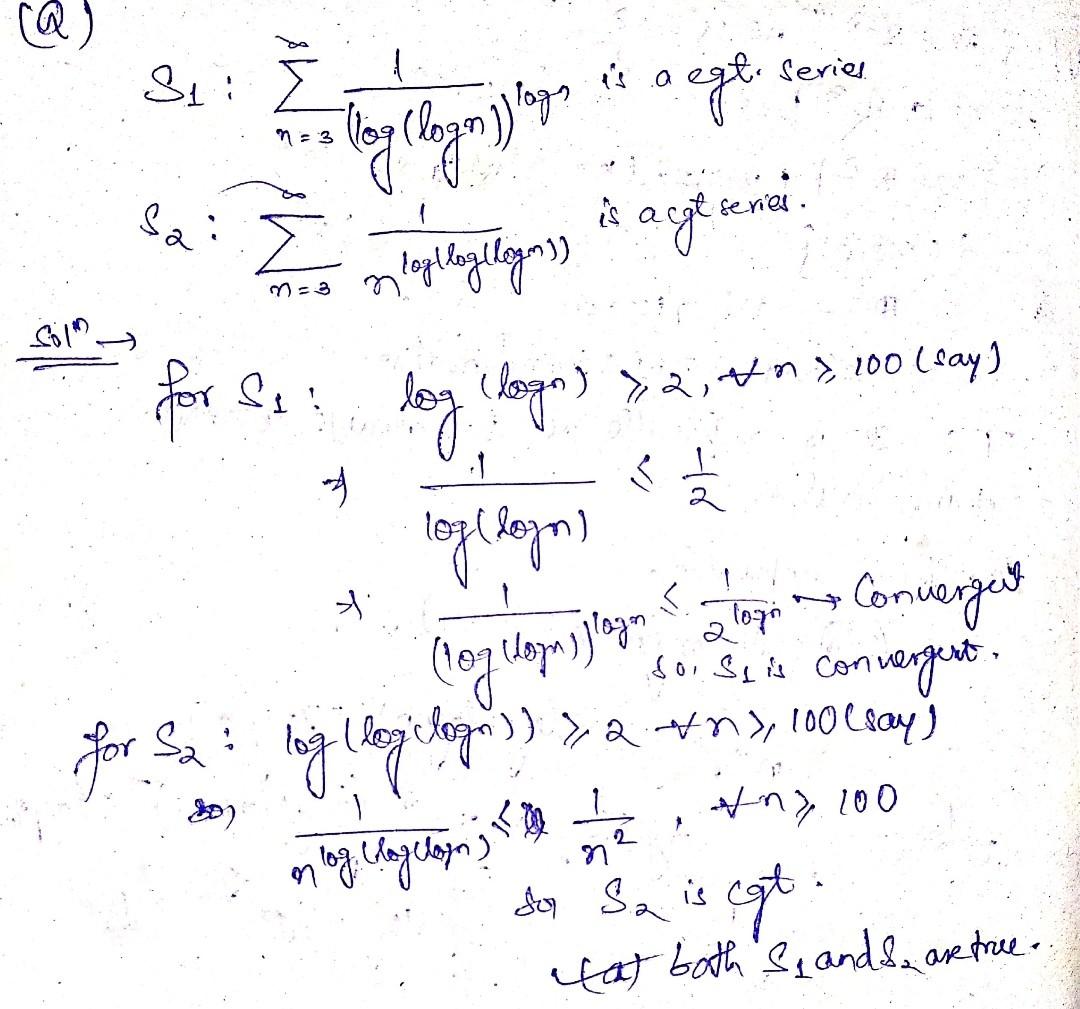 (Q)
S₁ : ∞ Σ n=3 1/(log(logn))^logn is a cgt. series
S₂ : ∞ Σ n=3 1/n^log(log(logn)) is a cgt series.
Solⁿ →
for S₁ : log (logn) ≥ 2, ∀ n ≥ 100 (say)
⇒ 1/log(logn) ≤ 1/2
⇒ 1/(log(logn))^logn ≤ 1/2^logn → Convergent
so, S₁ is convergent.
for S₂ : log(log(logn)) ≥ 2 ∀ n ≥, 100 (say)
so, 1/n^log(log(logn)) ≤ 1/n², ∀ n ≥ 100
so S₂ is cgt.
(a) both S₁ and S₂ are true.